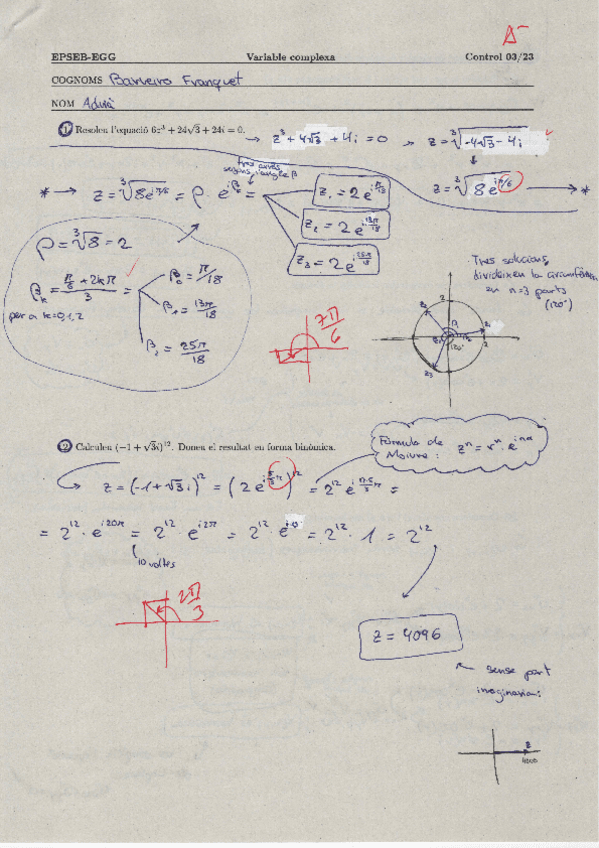 A⁻
EPSEB-EGG Variable complexa Control 03/23
COGNOMS Barreiro Franquet
NOM Adrià
1 Resoleu l'equació 6z³ + 24√3 + 24i = 0. → z³ + 4√3 + 4i = 0 → z = ∛(-4√3 - 4i)
tres arrels
* → z = ∛(8e^(iπ/6)) = ρ e^(iβ) =
z₁ = 2e^(iπ/18)
z₂ = 2e^(i13π/18)
z₃ = 2e^(i25π/18)
z = ∛(8e^(iπ/6)) → *
ρ = ∛8 = 2
βₖ = (π/6 + 2kπ)/3 =
per a k=0,1,2
β₀ = π/18
β₁ = 13π/18
β₂ = 25π/18
7π/6
Tres solucions,
divideixen la circumferència
en n=3 parts
(120°)
z₁
z₃
2
120°
2 Calculeu (−1 + √3i)¹². Doneu el resultat en forma binòmica.
Fórmula de
Moivre: zⁿ = rⁿ · e^(inα)
z = (-1+√3i)¹² = (2e^(i5π/3))¹² = 2¹² e^(i12·5π/3) =
= 2¹² · e^(i20π) = 2¹² · e^(i2π) = 2¹² · e^(i0) = 2¹² · 1 = 2¹²
10 voltes
2π/3
z = 4096
sense part
imaginaria
z
4096